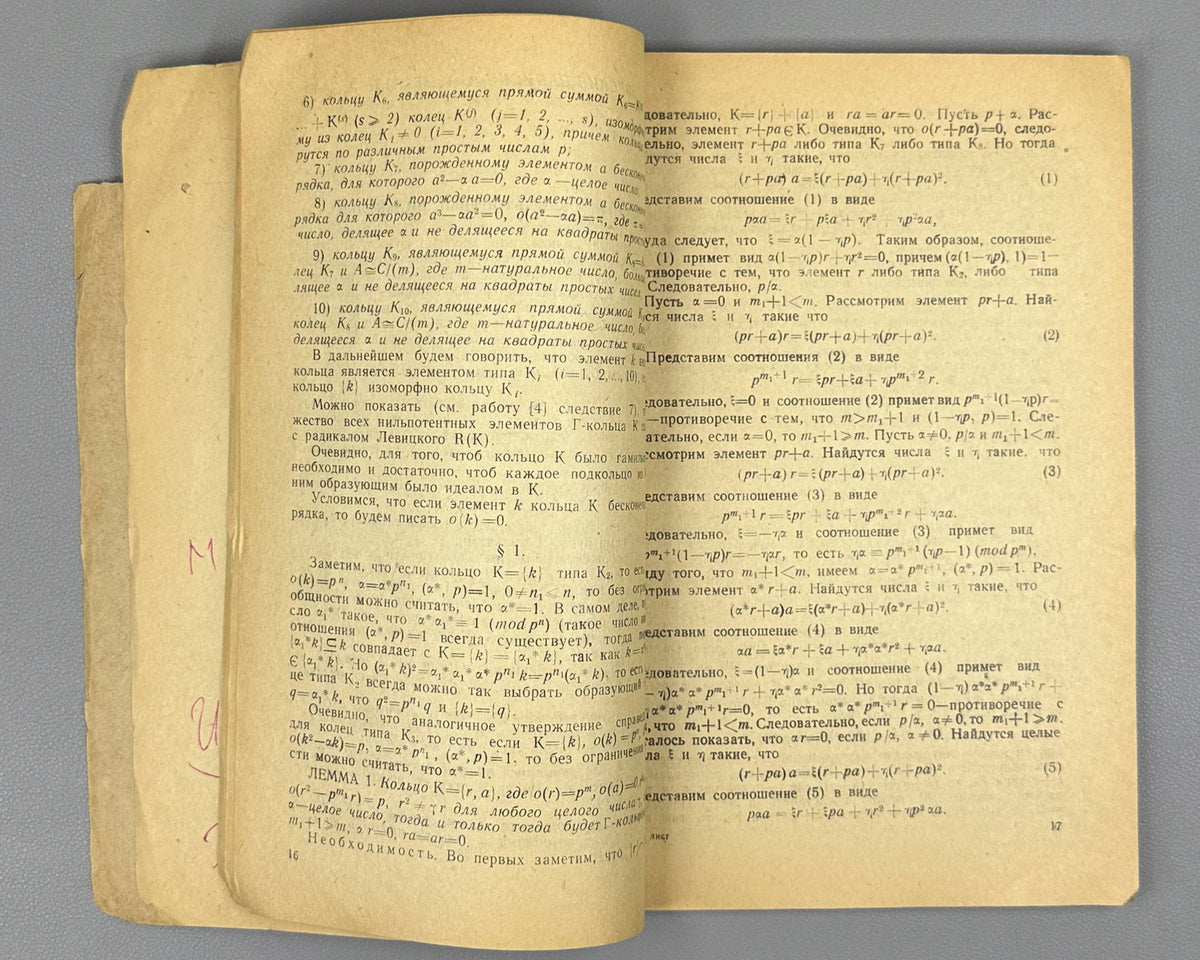 6) кольцу K₆, являющемуся прямой суммой K₆=
... +K⁽ˢ⁾ (s ⩾ 2) колец K⁽ʲ⁾ (j=1, 2, ..., s),
му из колец Kᵢ ≠ 0 (i=1, 2, 3, 4, 5), причем
рутся по различным простым числам p;
7) кольцу K₇, порожденному элементом a
рядка, для которого a²—αa=0, где α —целое число,
8) кольцу K₈, порожденному элементом a
рядка для которого a³—αa²=0, o(a²—αa)=π, где
число, делящее α и не делящееся на квадраты
9) кольцу K₉, являющемуся прямой суммой
лец K₇ и A≃C/(m), где m—натуральное число,
лящее α и не делящееся на квадраты простых чисел
10) кольцу K₁₀, являющемуся прямой суммой
колец K₈ и A≃C/(m), где m—натуральное число,
делящееся α и не делящее на квадраты простых
В дальнейшем будем говорить, что элемент k
кольца является элементом типа Kᵢ (i=1, 2,..., 10),
кольцо {k} изоморфно кольцу Kᵢ.
Можно показать (см. работу {4} следствие 7),
жество всех нильпотентных элементов Г-кольца K
с радикалом Левицкого R(K).
Очевидно, для того, чтоб кольцо K было
необходимо и достаточно, чтоб каждое подкольцо
ним образующим было идеалом в K.
Условимся, что если элемент k кольца K
рядка, то будем писать o(k)=0.
§ 1.
Заметим, что если кольцо K={k} типа K₂, то
o(k)=pⁿ, α=α*pⁿ¹, (α*, p)=1, 0≠n₁<n, то без
общности можно считать, что α*=1. В самом деле,
сло α₁* такое, что α*α₁*≡1 (mod pⁿ) (такое число
отношения (α*, p)=1 всегда существует), тогда
{α₁*k}⊆k совпадает с K={k}={α₁*k}, так как
∈{α₁*k}. Но (α₁*k)²=α₁*α₁*α*pⁿ¹k=pⁿ¹(α₁*k), то
це типа K₂ всегда можно так выбрать образующий
q=α₁*k, что q²=pⁿ¹q и {k}={q}.
Очевидно, что аналогичное утверждение
для колец типа K₃, то есть если K={k}, o(k)=
o(k²—αk)=p, α=α*pⁿ¹, (α*, p)=1, то без
сти можно считать, что α*=1.
ЛЕММА 1. Кольцо K={r, a}, где o(r)=pᵐ, o(a)=0,
o(r²—pᵐ¹r)=p, r²≠γr для любого целого числа
α—целое число, тогда и только тогда будет
m₁+1⩾m, αr=0, ra=ar=0.
Необходимость. Во первых заметим, что
16
довательно, K={r}+{a} и ra=ar=0. Пусть p∤α. Рас-
трим элемент r+pa∈K. Очевидно, что o(r+pa)=0, следо-
ельно, элемент r+pa либо типа K₇ либо типа K₈. Но тогда
дутся числа ξ и η такие, что
(r+pa) a=ξ(r+pa)+η(r+pa)². (1)
едставим соотношение (1) в виде
pαa=ξr+pξa+ηr²+ηp²αa,
уда следует, что ξ=α(1—ηp). Таким образом, соотноше-
(1) примет вид α(1—ηp)r+ηr²=0, причем (α(1—ηp), 1)=1—
тиворечие с тем, что элемент r либо типа K₂, либо типа
Следовательно, p/α.
Пусть α=0 и m₁+1<m. Рассмотрим элемент pr+a. Най-
ся числа ξ и η такие что
(pr+a)r=ξ(pr+a)+η(pr+a)². (2)
Представим соотношения (2) в виде
pᵐ¹⁺¹ r=ξpr+ξa+ηpᵐ¹⁺² r.
довательно, ξ=0 и соотношение (2) примет вид pᵐ¹⁺¹(1—ηp)r=
—противоречие с тем, что m>m₁+1 и (1—ηp, p)=1. Сле-
ательно, если α=0, то m₁+1⩾m. Пусть α≠0, p/α и m₁+1<m.
смотрим элемент pr+a. Найдутся числа ξ и η такие, что
(pr+a) r=ξ(pr+a)+η(pr+a)². (3)
едставим соотношение (3) в виде
pᵐ¹⁺¹ r=ξpr+ξa+ηpᵐ¹⁺² r+ηαa.
довательно, ξ=—ηα и соотношение (3) примет вид
pᵐ¹⁺¹(1—ηp)r=—ηαr, то есть ηα≡pᵐ¹⁺¹(ηp—1) (mod pᵐ),
ду того, что m₁+1<m, имеем α=α*pᵐ¹⁺¹, (α*, p)=1. Рас-
трим элемент α*r+a. Найдутся числа ξ и η такие, что
(α*r+a)a=ξ(α*r+a)+η(α*r+a)². (4)
едставим соотношение (4) в виде
αa=ξα*r+ξa+ηα*α*r²+ηαa.
довательно, ξ=(1—η)α и соотношение (4) примет вид
—η)α*α*pᵐ¹⁺¹r+ηα*α*r²=0. Но тогда (1—η)α*α*pᵐ¹⁺¹r+
ηα*α*pᵐ¹⁺¹r=0, то есть α*α*pᵐ¹⁺¹r=0—противоречие с
, что m₁+1<m. Следовательно, если p/α, α≠0, то m₁+1⩾m.
алось показать, что αr=0, если p/α, α≠0. Найдутся целые
ла ξ и η такие, что
(r+pa) a=ξ(r+pa)+η(r+pa)². (5)
едставим соотношение (5) в виде
pαa=ξr+ξpa+ηr²+ηp²αa.
17
лист